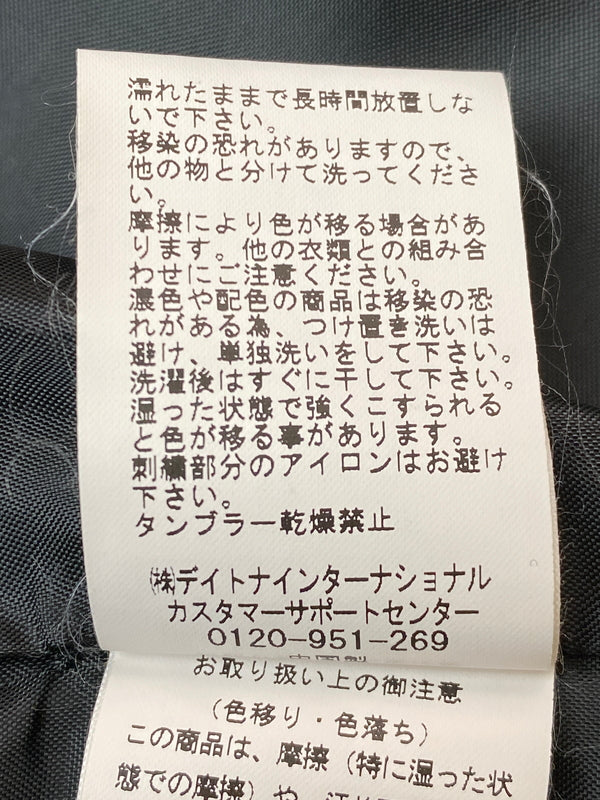 濡れたままで長時間放置しな
いで下さい。
移染の恐れがありますので、
他の物と分けて洗ってくださ
い。
摩擦により色が移る場合があ
ります。他の衣類との組み合
わせにご注意ください。
濃色や配色の商品は移染の恐
れがある為、つけ置き洗いは
避け、単独洗いをして下さい。
洗濯後はすぐに干して下さい。
湿った状態で強くこすられる
と色が移る事があります。
刺繍部分のアイロンはお避け
下さい。
タンブラー乾燥禁止
㈱デイトナインターナショナル
カスタマーサポートセンター
0120-951-269
お取り扱い上の御注意
(色移り・色落ち)
この商品は、摩擦(特に湿った状
態での摩擦)や、